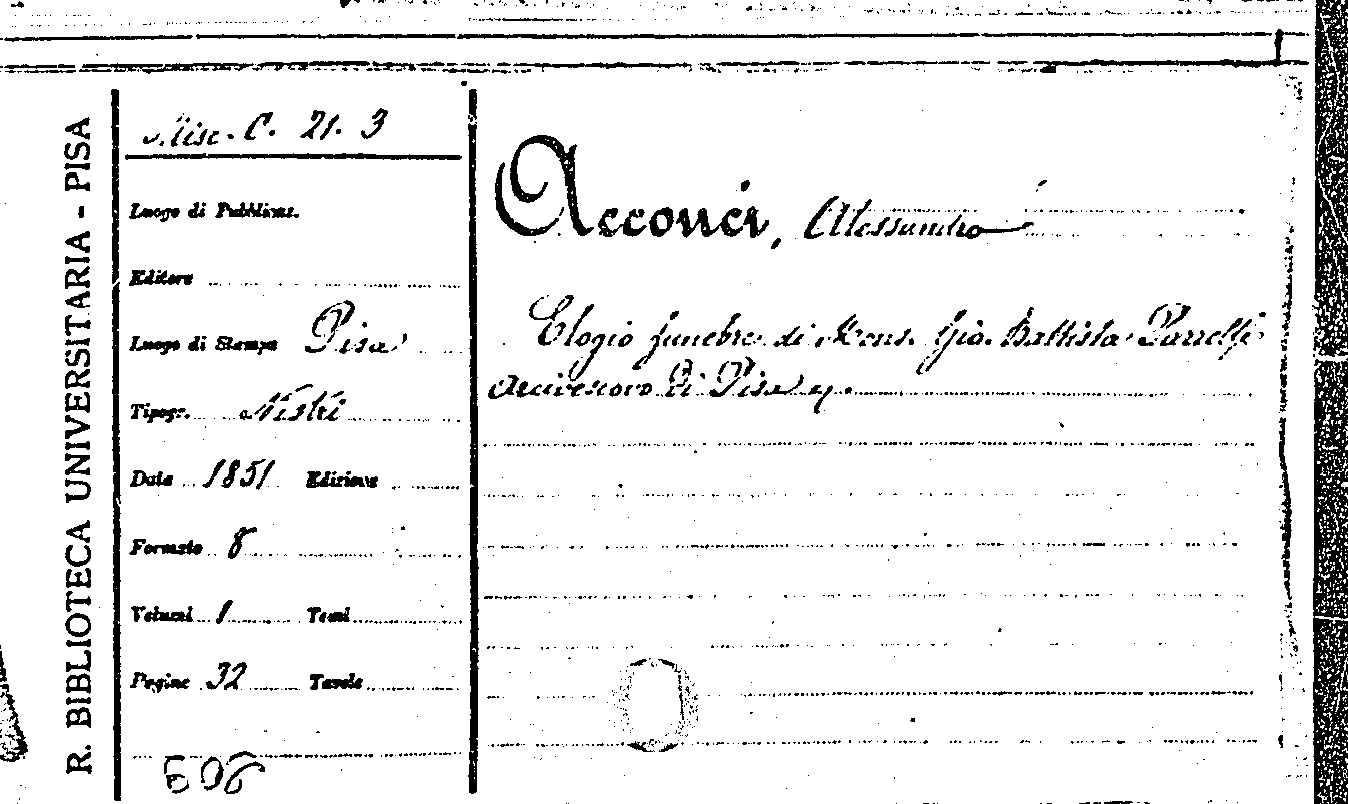 R. BIBLIOTECA UNIVERSITARIA - PISA
Misc. C. 21. 3
Luogo di Pubblicaz.
Editore
Luogo di Stampa Pisa
Tipogr. Nistri
Data 1851 Edizione
Formato 8
Volumi 1 Tomi
Pagine 32 Tavole
Acconci, Alessandro
Elogio funebre di Mons. Gio. Battista Parretti
Arcivescovo di Pisa